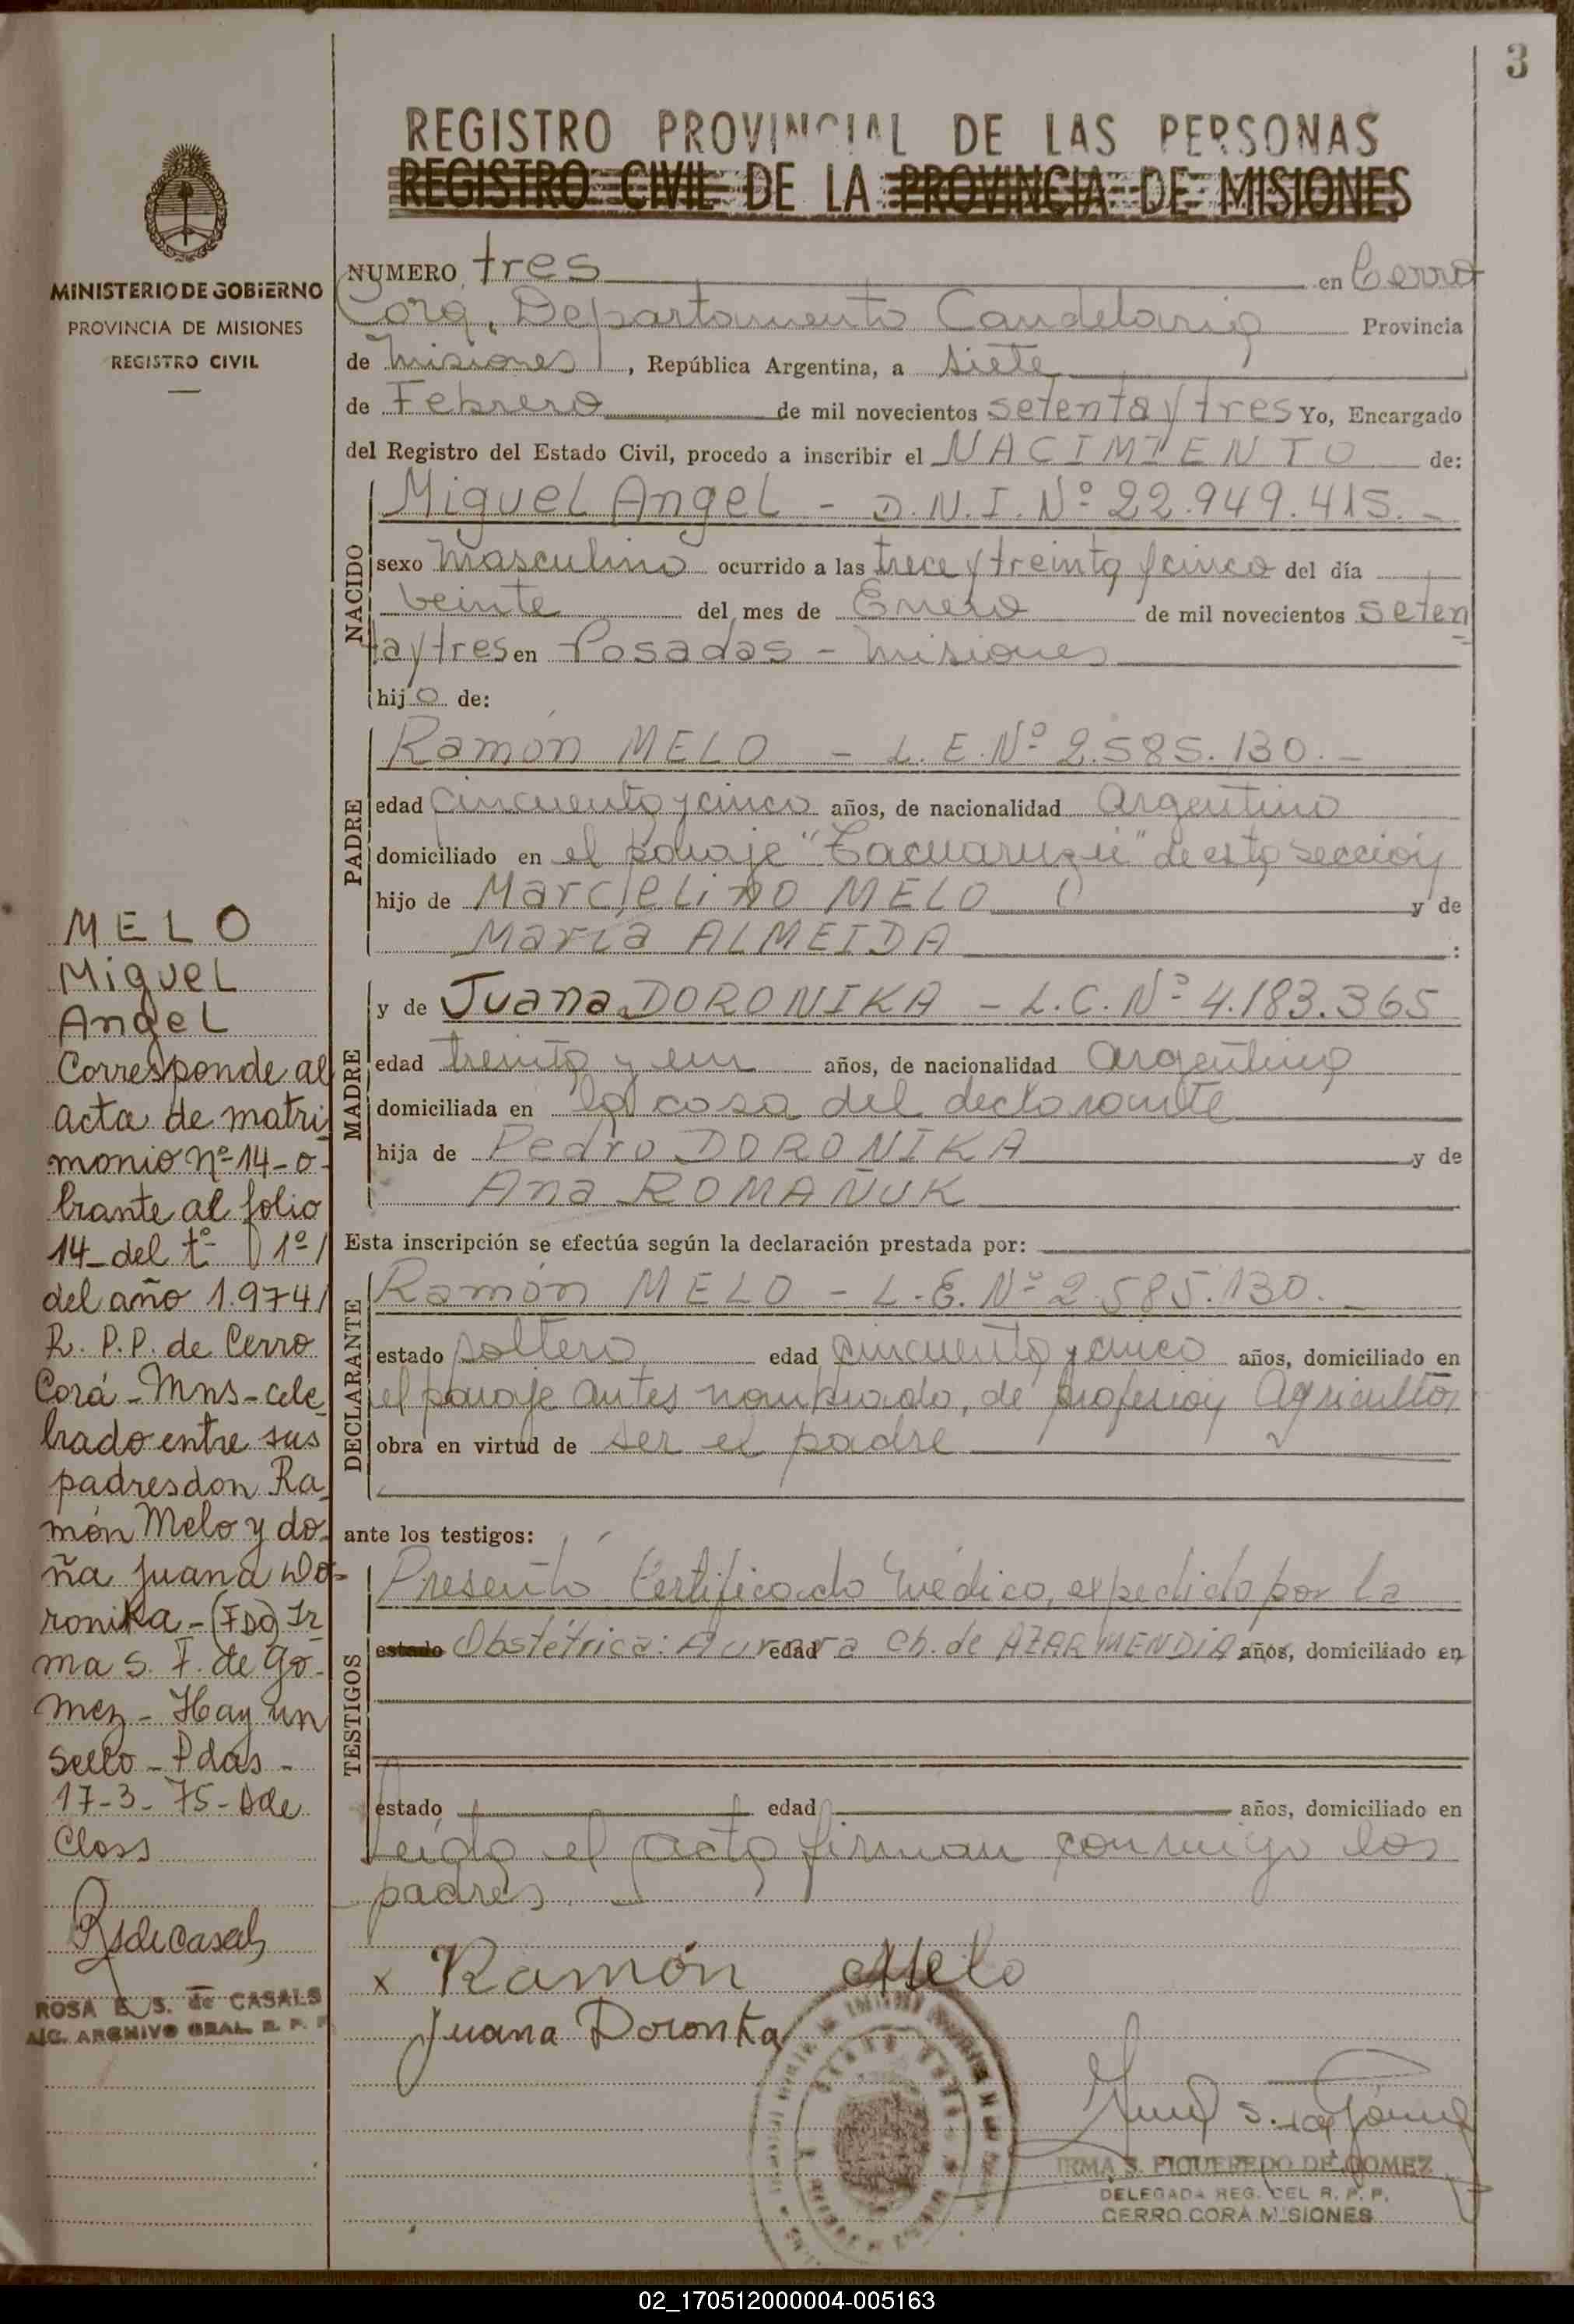 3
REGISTRO PROVINCIAL DE LAS PERSONAS
REGISTRO CIVIL DE LA PROVINCIA DE MISIONES
MINISTERIO DE GOBIERNO
PROVINCIA DE MISIONES
REGISTRO CIVIL
NUMERO tres en Cerro
Corá, Departamento Candelaria Provincia
de Misiones, República Argentina, a siete
de Febrero de mil novecientos setenta y tres Yo, Encargado
del Registro del Estado Civil, procedo a inscribir el NACIMIENTO de:
NACIDO
Miguel Angel - D.N.I. Nº 22.949.415.-
sexo masculino ocurrido a las trece y treinta y cinco del día
veinte del mes de Enero de mil novecientos seten
ta y tres en Posadas - Misiones
hijo de:
PADRE
Ramón MELO - L.E. Nº 2.585.130.-
edad cincuenta y cinco años, de nacionalidad argentino
domiciliado en el paraje "Tacuaruzú" de esta sección
hijo de Marcielino MELO y de
María ALMEIDA :
MADRE
y de Juana DORONIKA - L.C. Nº 4.183.365
edad treinta y un años, de nacionalidad argentina
domiciliada en la casa del declarante
hija de Pedro DORONIKA y de
Ana ROMAÑUK
Esta inscripción se efectúa según la declaración prestada por:
DECLARANTE
Ramón MELO - L.E. Nº 2.585.130.-
estado soltero edad cincuenta y cinco años, domiciliado en
el paraje antes nombrado, de profesión Agricultor
obra en virtud de ser el padre
ante los testigos:
TESTIGOS
Presentó Certificado Médico, expedido por la
estado Obstétrica: Aurora edad Ch. de AZARMENDIA años, domiciliado en
estado edad años, domiciliado en
Leída el acta firman conmigo los
padres.
x Ramón Melo
Juana Doronka
IRMA S. FIGUEREDO DE GOMEZ
DELEGADA REG. DEL R. P. P.
CERRO CORA MISIONES
MELO
Miguel
Angel
Corresponde al
acta de matri
monio nº 14-o-
brante al folio
14-del tº 1º/
del año 1.974/
R. P.P. de Cerro
Corá-Mns-cele
brado entre sus
padres don Ra
món Melo y do-
ña Juana Do-
ronika-(FDO) Ir
ma S. F. de Go-
mez-Hay un
sello-Pdas-
17-3-75-Sde
Closs
RSdeCasals
ROSA E. S. de CASALS
A/C. ARCHIVO GRAL. R. P. P.
02_170512000004-005163